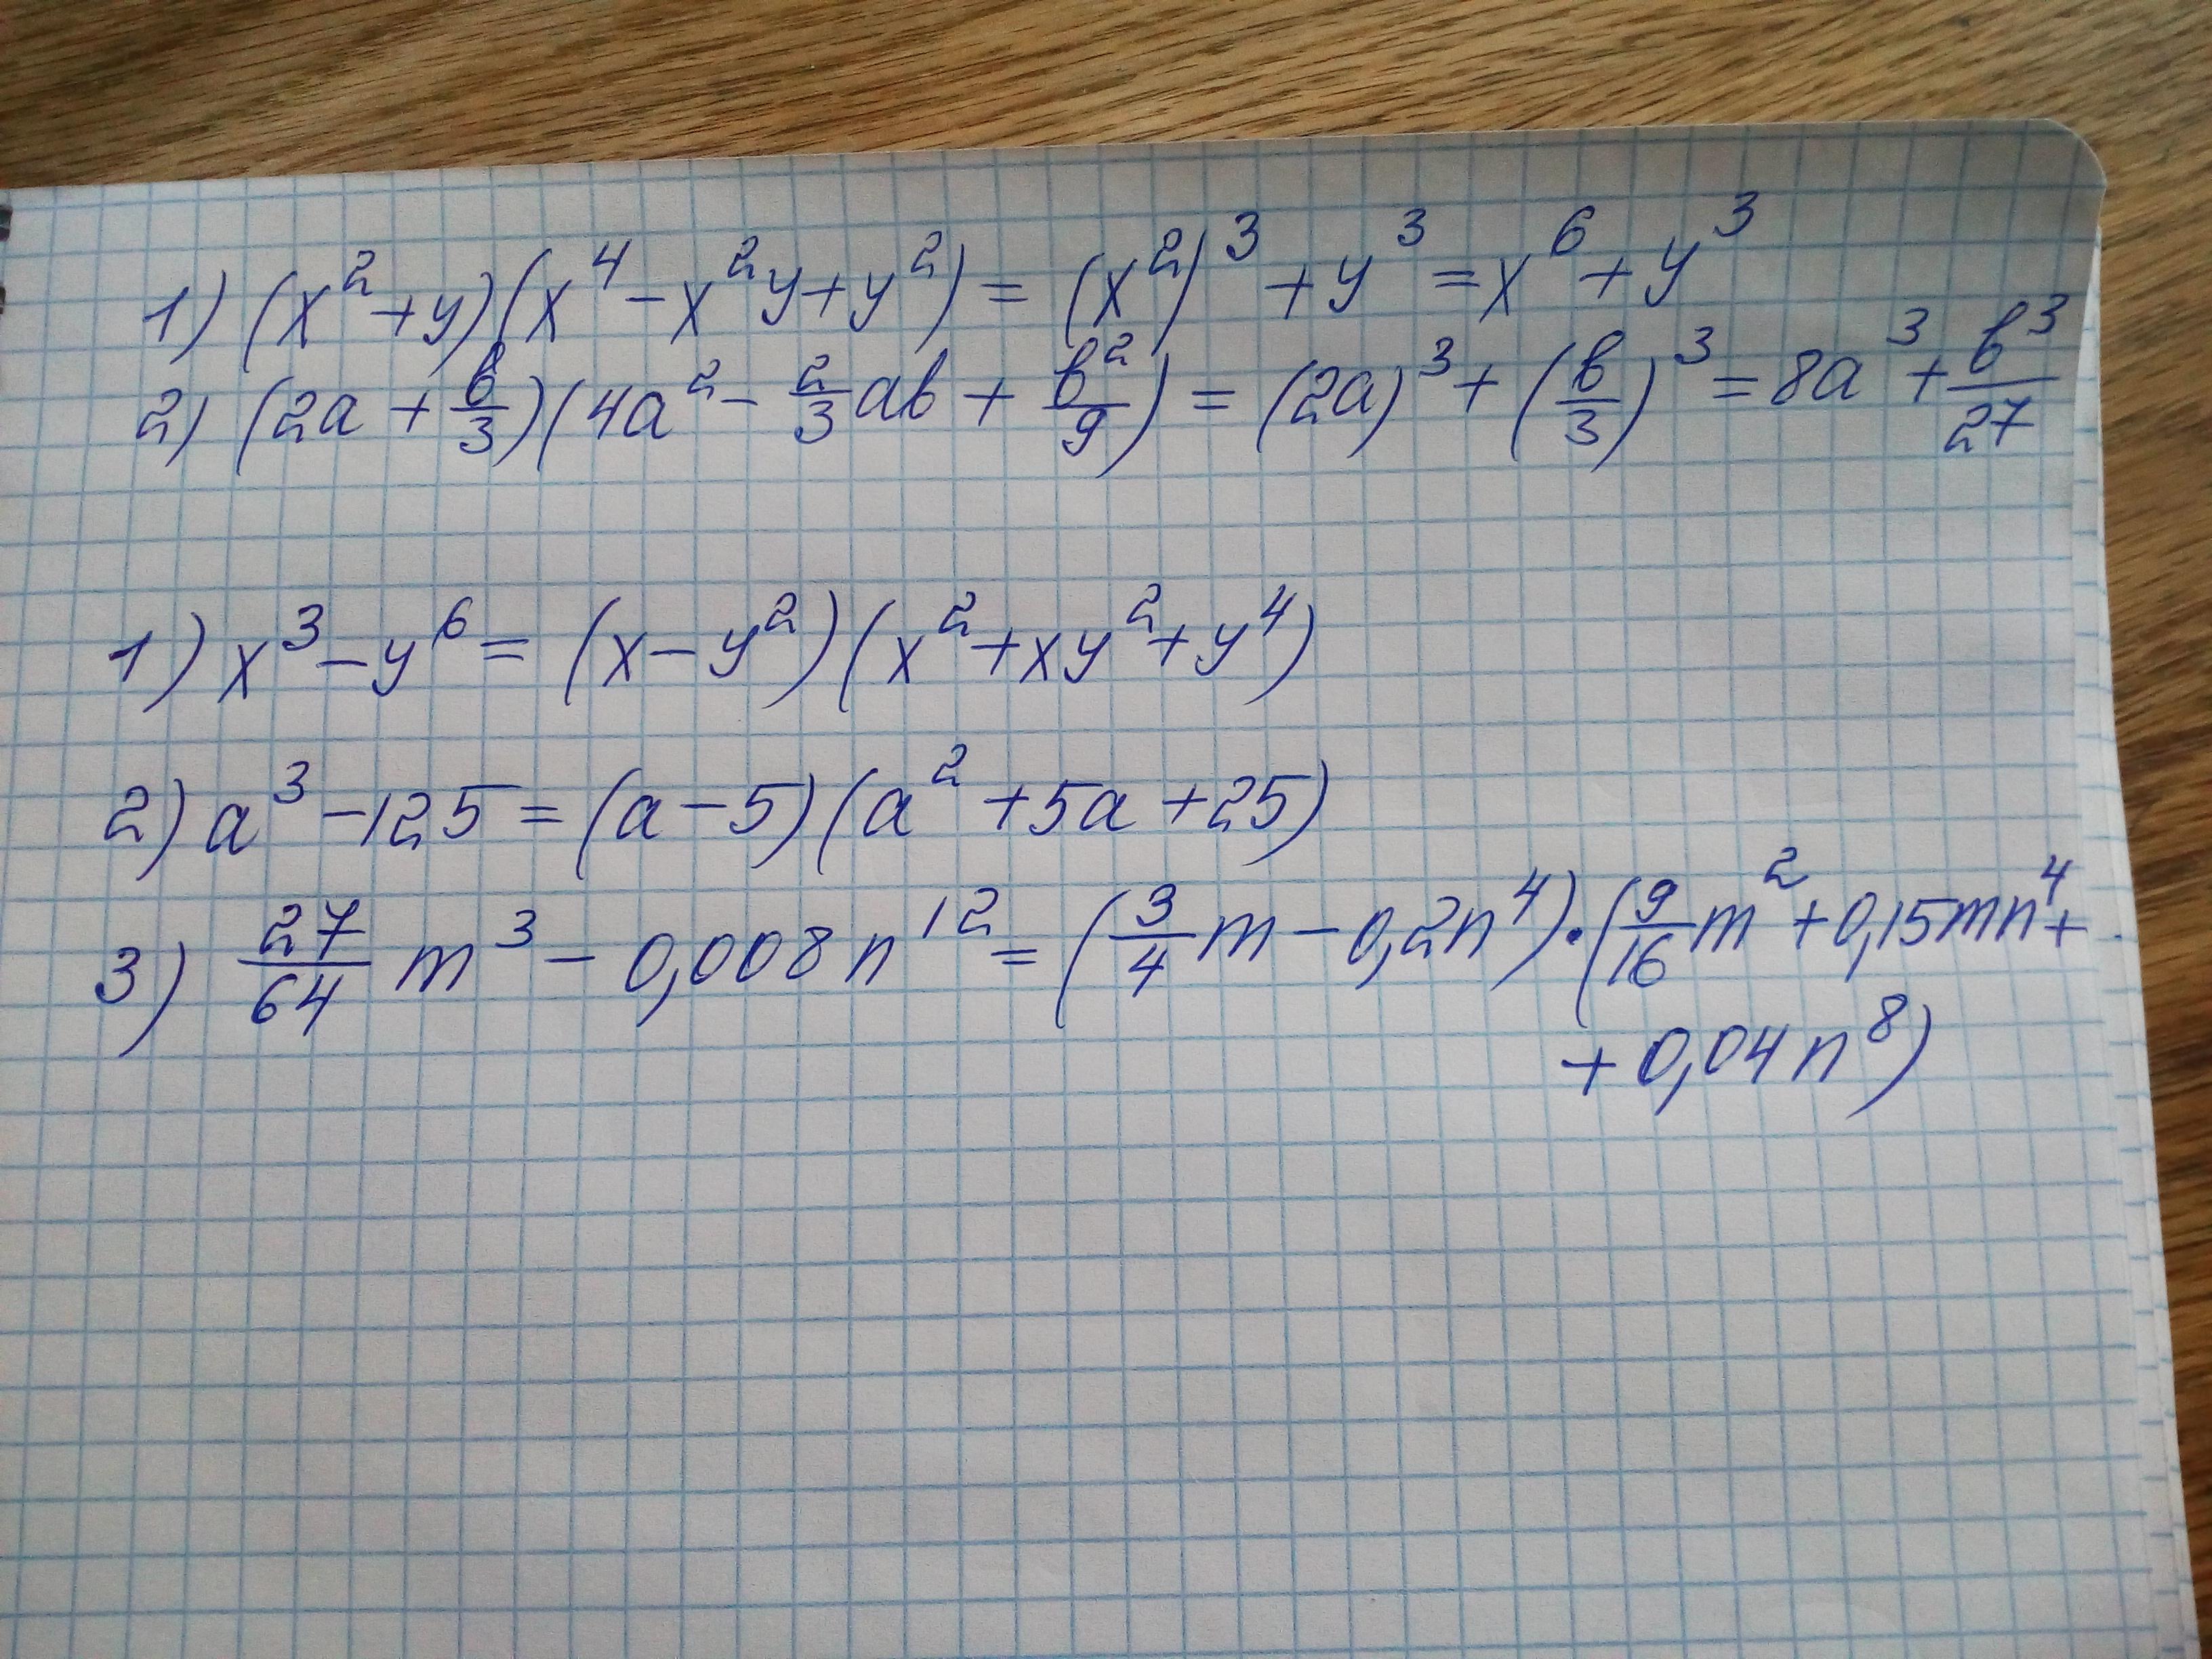 1) (x²+y)(x⁴-x²y+y²) = (x²)³+y³=x⁶+y³
2) (2a+в/3)(4a²-2/3aв+в²/9) = (2a)³+(в/3)³=8a³+в³/27
1) x³-y⁶= (x-y²)(x²+xy²+y⁴)
2) a³-125=(a-5)(a²+5a+25)
3) 27/64 m³-0,008n¹²=(3/4m-0,2n⁴)·(9/16m²+0,15mn⁴+
+0,04n⁸)